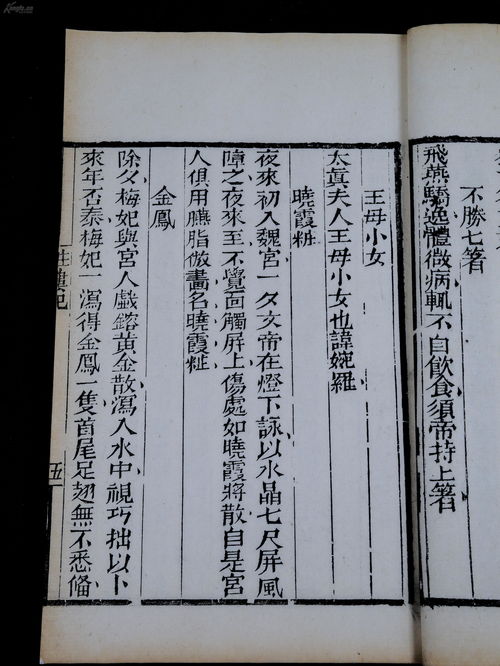 不勝七箸
飛燕驕逸體微病輒不自飲食須帝持上箸
王母小女
太眞夫人王母小女也諱婉羅
曉霞粧
夜來初入魏宮一夕文帝在燈下詠以水晶七尺屏風
障之夜來至不覺面觸屏上傷處如曉霞將散自是宮
人俱用臙脂倣畫名曉霞粧
金鳳
除夕梅妃與宮人戲鎔黃金散瀉入水中視巧拙以卜
來年否泰梅妃一瀉得金鳳一隻首尾足翅無不悉備
五